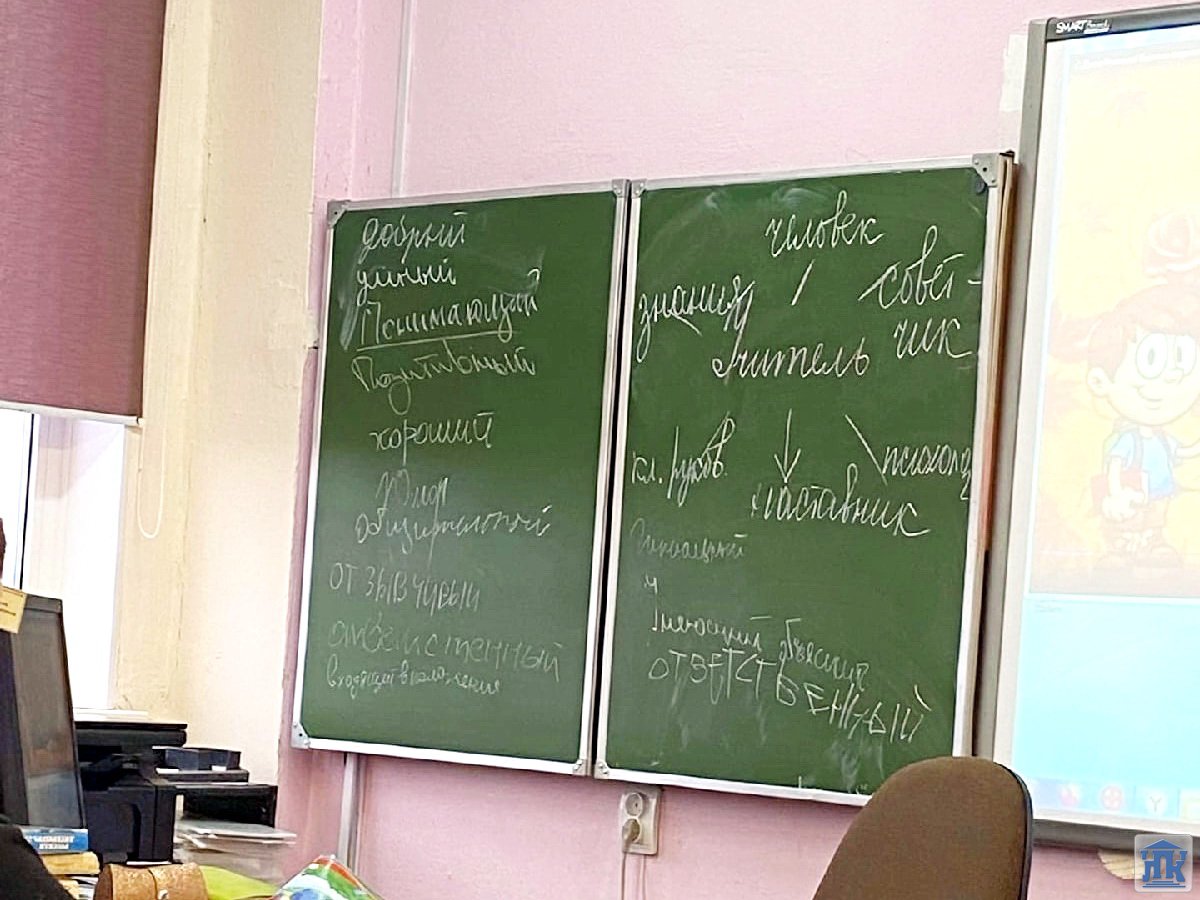 добрый
умный
Понимающий
Позитивный
хороший
Юмор
отзывчивый
ответственный
входящий в положение
человек
знания
совет-
чик
Учитель
кл. руков.
психолог
наставник
и
объяснить
ответственный
SMART
ПК